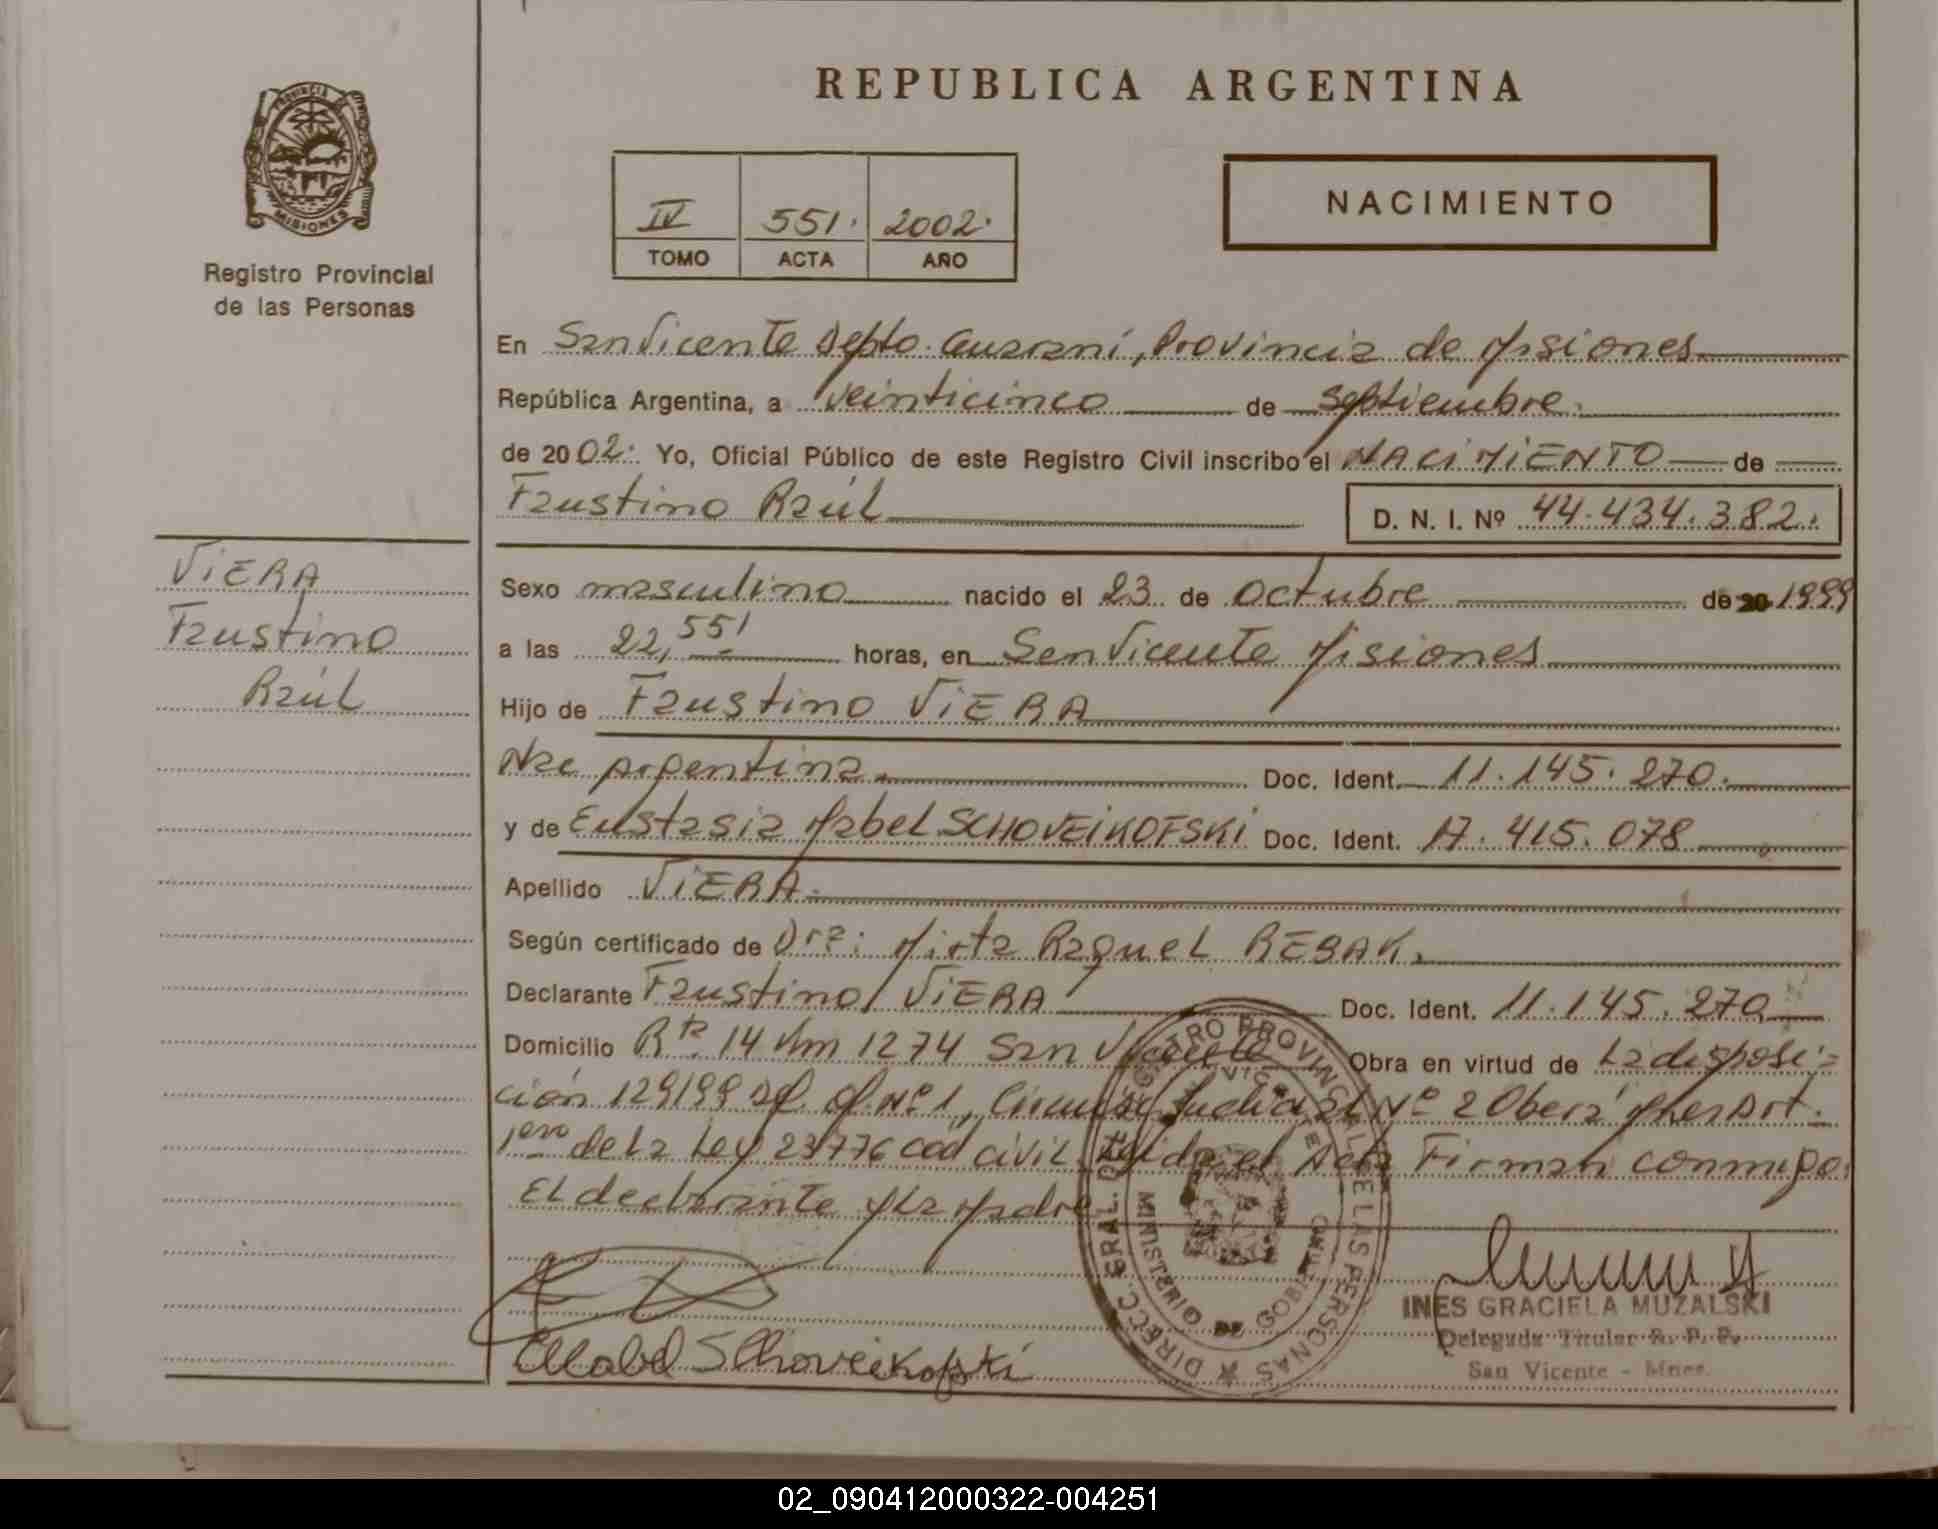 REPUBLICA ARGENTINA
PROVINCIA DE
MISIONES
Registro Provincial
de las Personas
IV 551. 2002.
TOMO ACTA AÑO
NACIMIENTO
En San Vicente Depto. Guaraní, Provincia de Misiones
República Argentina, a veinticinco de septiembre.
de 2002. Yo, Oficial Público de este Registro Civil inscribo el NACIMIENTO de
Faustino Raúl D. N. I. Nº 44.434.382.
VIERA
Faustino
Raúl
Sexo masculino nacido el 23 de octubre de 20 1999
a las 22,55' horas, en San Vicente Misiones
Hijo de Faustino VIERA
Nac Argentina. Doc. Ident. 11.145.270.
y de Eustasia Mabel SCHOVEIKOFSKI Doc. Ident. 17.415.078
Apellido VIERA.
Según certificado de Dra: Mirta Raquel REBAK.
Declarante Faustino VIERA Doc. Ident. 11.145.270
Domicilio Rta 14 Km 1274 San Vicente Obra en virtud de La disposi=
ción 129/99 Nº 1, Judicial Nº 2 Oberá Art.
1ero de La Ley 23776 cod civil. Leída el Acta Firman conmigo
El declarante y La Madre
DIRECC. GRAL. DEL REGISTRO PROVINCIAL DE LAS PERSONAS
MINISTERIO DE GOBIERNO
Mabel Schoveikofski
INES GRACIELA MUZALSKI
Delegada Titular R. P. P.
San Vicente - Mnes.
02_090412000322-004251